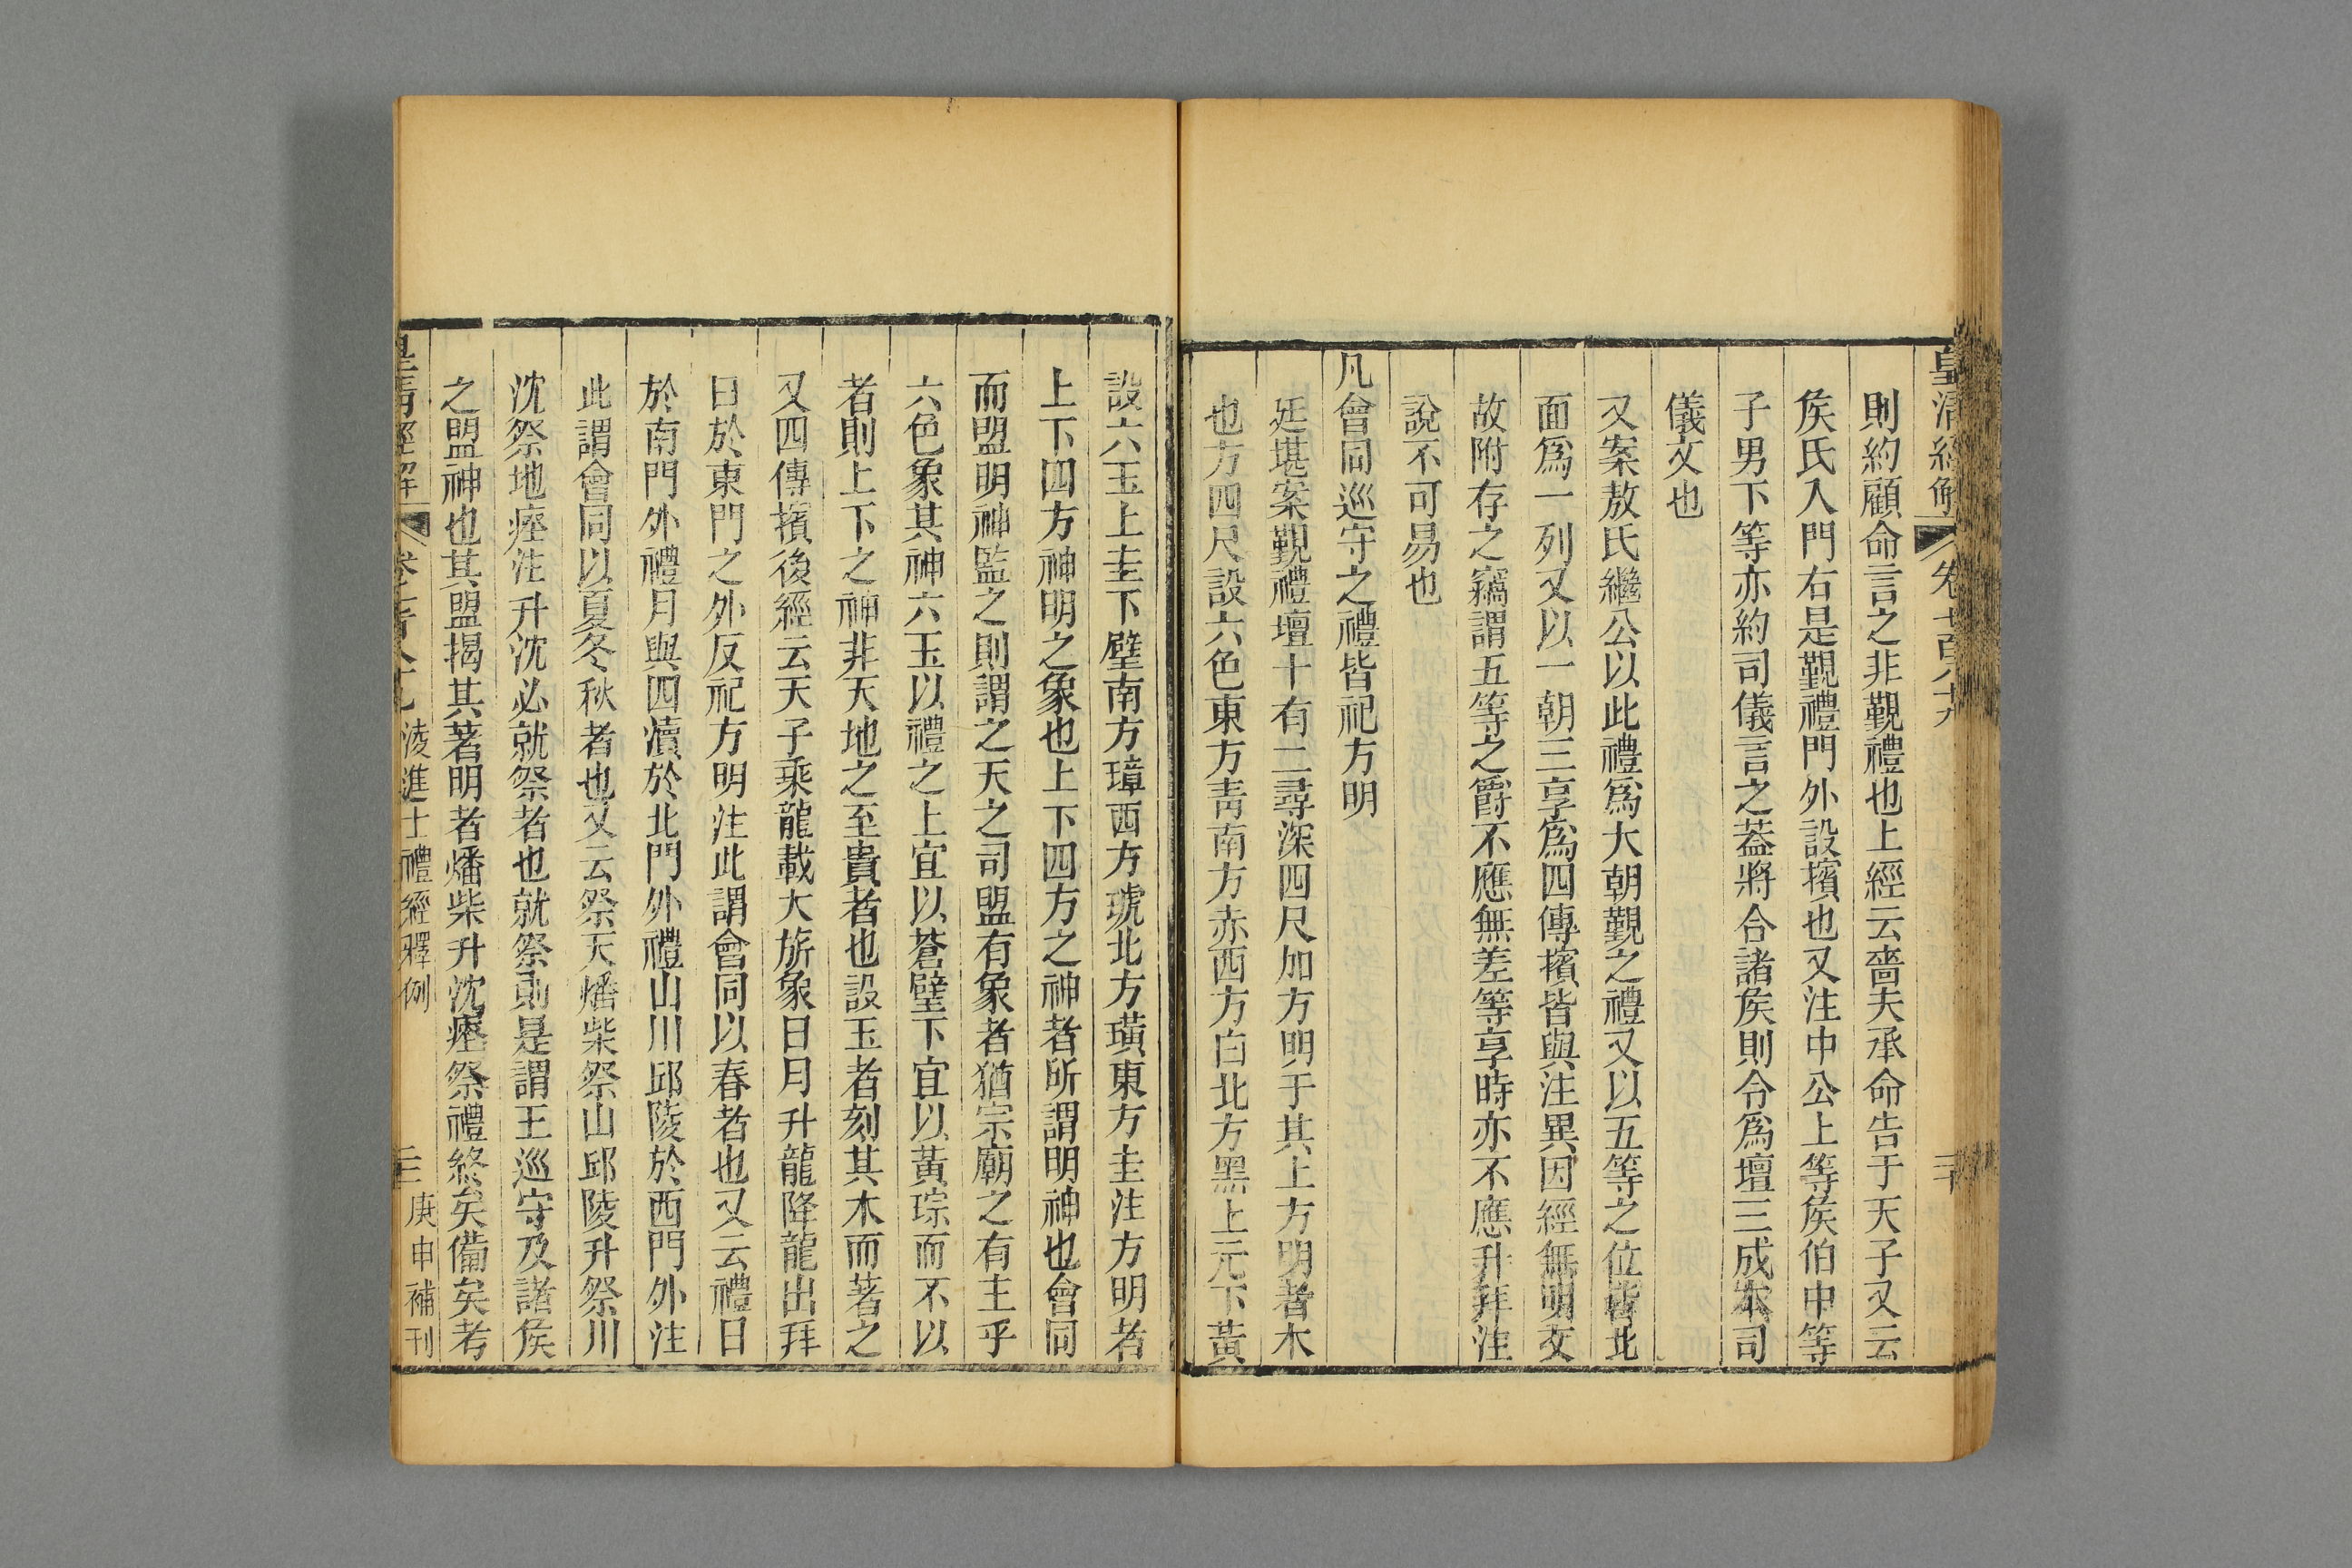 皇清經解 卷七百八十九 三十
則約顧命言之非覲禮也上經云嗇夫承命告于天子又云
矦氏入門右是覲禮門外設擯也又注中公上等矦伯中等
子男下等亦約司儀言之葢將合諸矦則令爲壇三成本司
儀文也
又案敖氏繼公以此禮爲大朝覲之禮又以五等之位皆北
面爲一列又以一朝三享爲四傳擯皆與注異因經無明文
故附存之竊謂五等之爵不應無差等享時亦不應升拜注
說不可易也
凡會同巡守之禮皆祀方明
廷堪案覲禮壇十有二尋深四尺加方明于其上方明者木
也方四尺設六色東方青南方赤西方白北方黑上元下黃
設六玉上圭下璧南方璋西方琥北方璜東方圭注方明者
上下四方神明之象也上下四方之神者所謂明神也會同
而盟明神監之則謂之天之司盟有象者猶宗廟之有主乎
六色象其神六玉以禮之上宜以蒼璧下宜以黃琮而不以
者則上下之神非天地之至貴者也設玉者刻其木而著之
又四傳擯後經云天子乘龍載大旂象日月升龍降龍出拜
日於東門之外反祀方明注此謂會同以春者也又云禮日
於南門外禮月與四瀆於北門外禮山川邱陵於西門外注
此謂會同以夏冬秋者也又云祭天燔柴祭山邱陵升祭川
沈祭地瘞注升沈必就祭者也就祭則是謂王巡守及諸矦
之盟神也其盟揭其著明者燔柴升沈瘞祭禮終矣備矣考
皇清經解 卷七百八十九 淩進士禮經釋例 庚申補刊